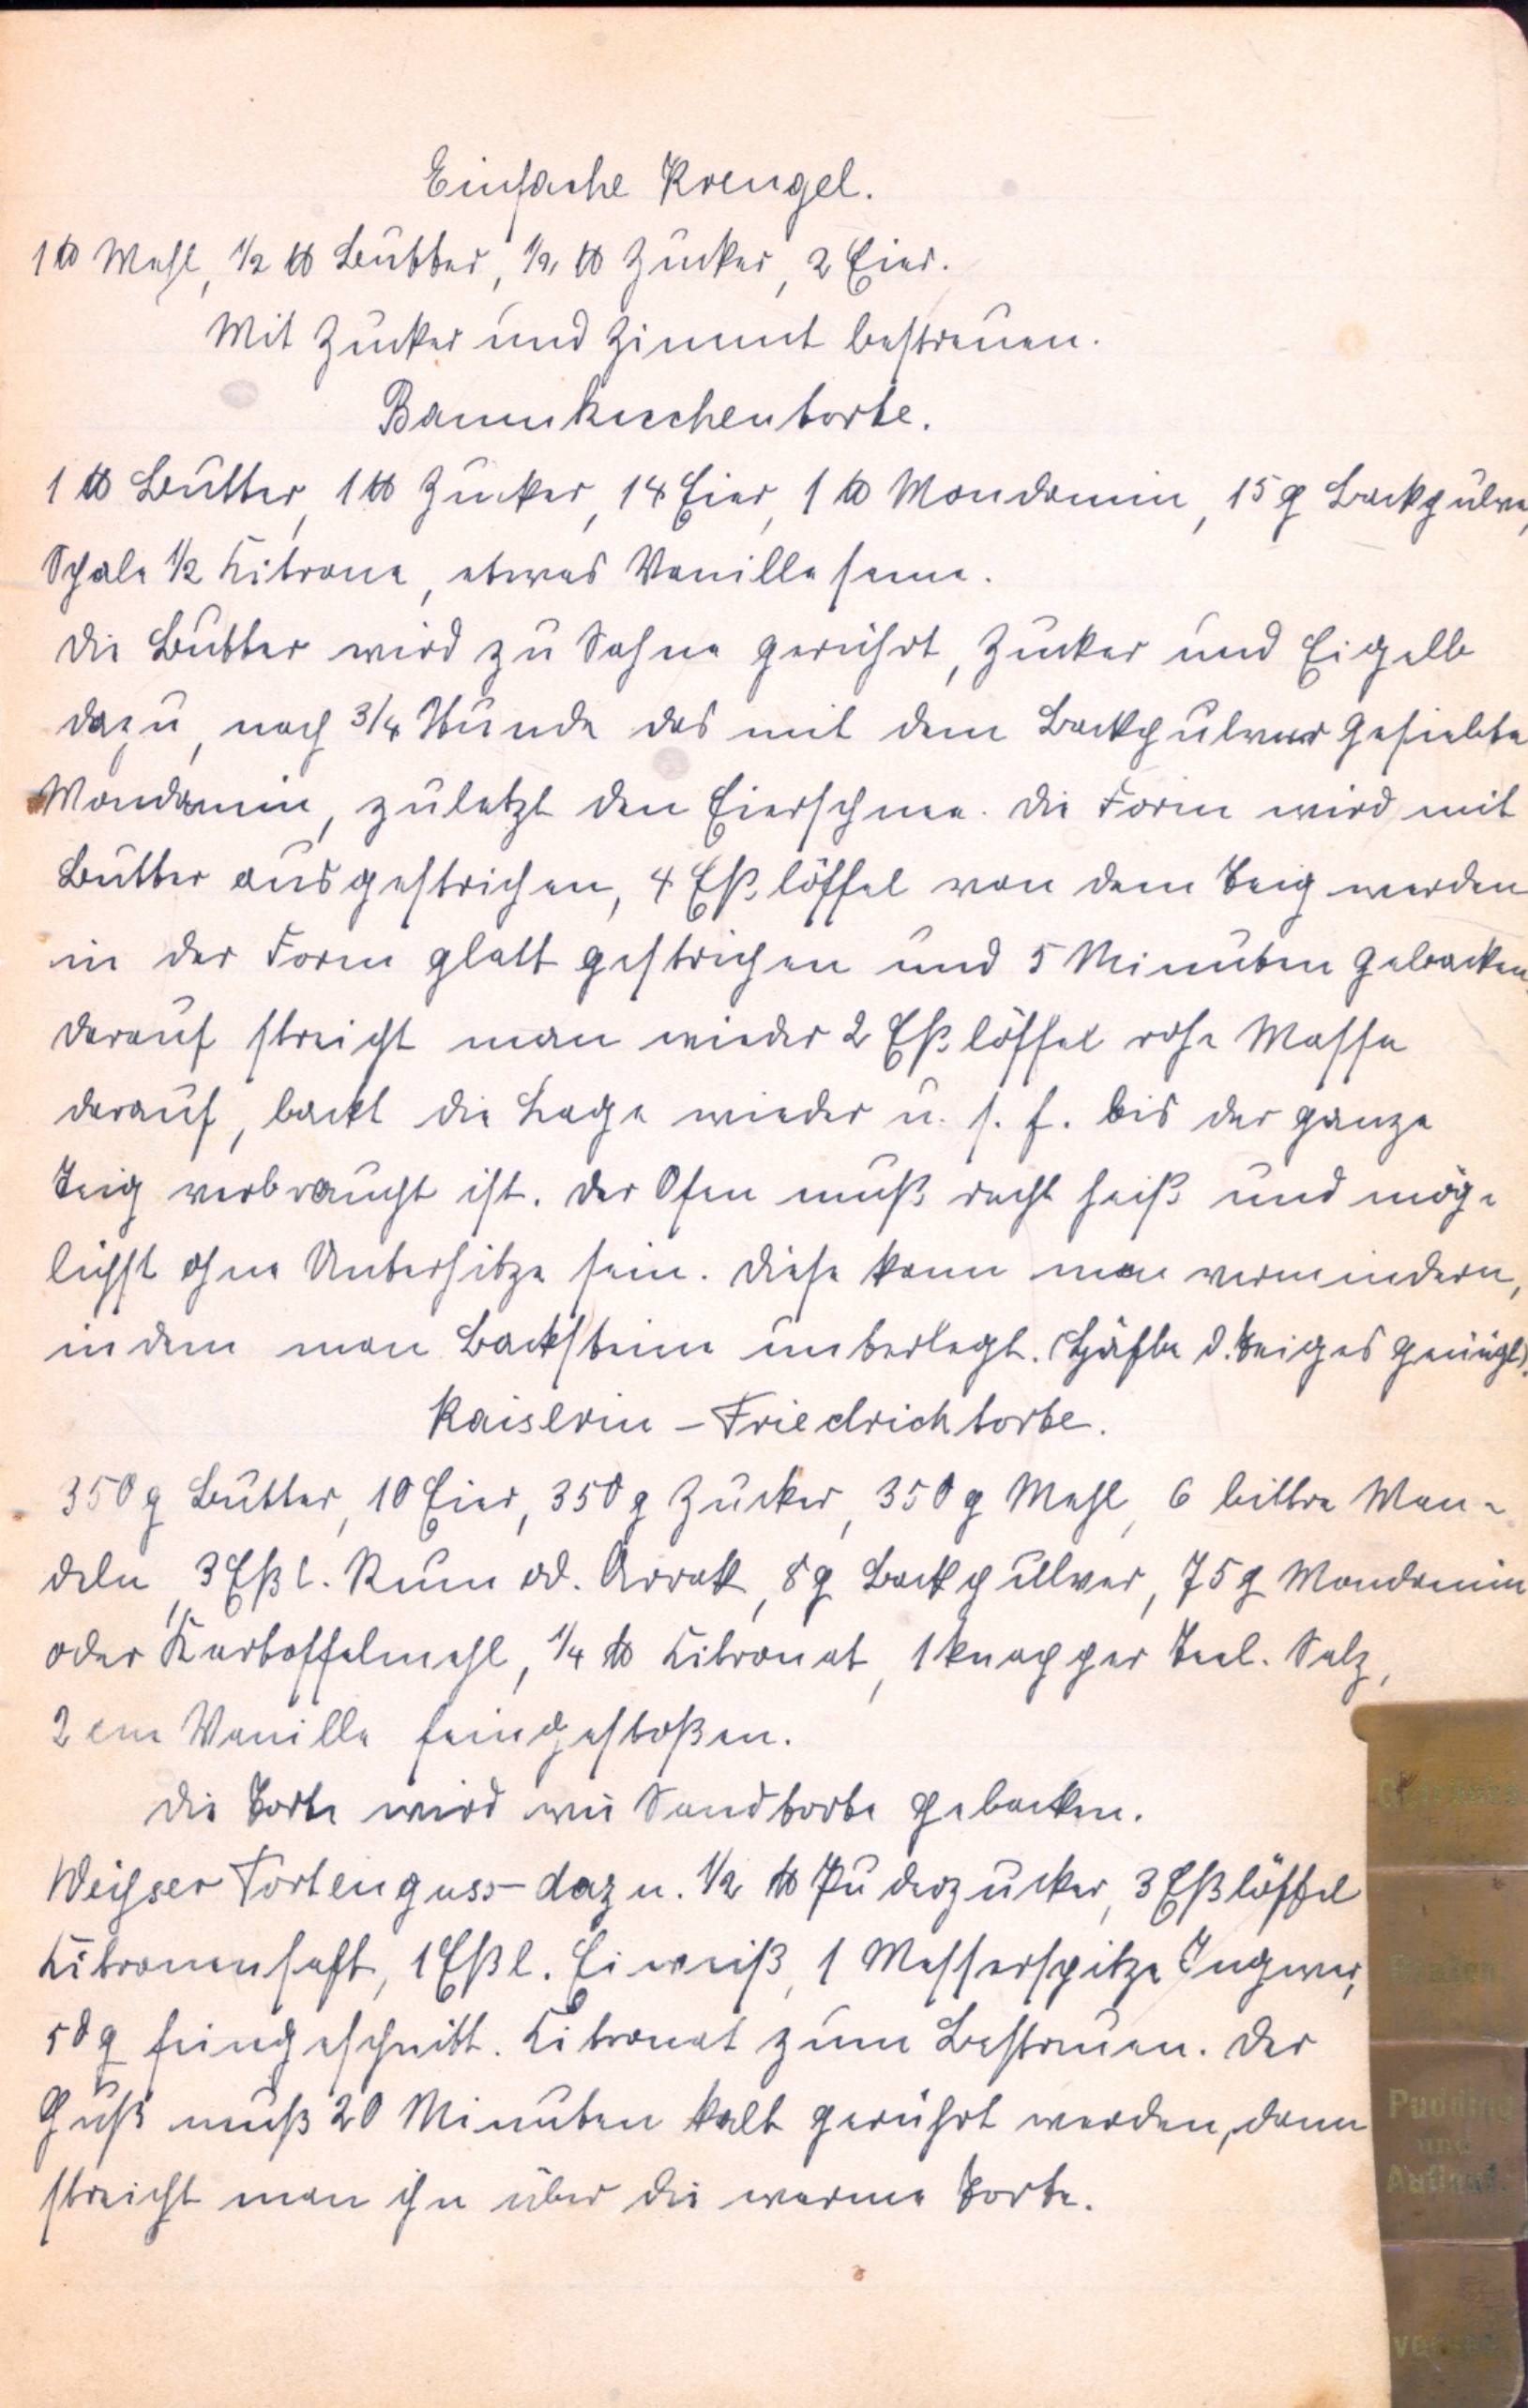 Einfache Krengel.
1 ℔ Mehl, ½ ℔ Butter, ½ ℔ Zucker, 2 Eier.
Mit Zucker und Zimmt bestreuen.
Baumkuchentorte.
1 ℔ Butter, 1 ℔ Zucker, 14 Eier, 1 ℔ Mondamin, 15 g Backpulver,
Schale ½ Zitrone, etwas Vanille feine.
Die Butter wird zu Sahne gerührt, Zucker und Eigelb
dazu, nach 3/4 Stunde das mit dem Backpulver gesiebte
Mondamin, zuletzt den Eierschnee. Die Form wird mit
Butter ausgestrichen, 4 Eßlöffel von dem Teig werden
in der Form glatt gestrichen und 5 Minuten gebacken,
darauf streicht man wieder 2 Eßlöffel rohe Masse
darauf, backt die Lage wieder u. s. f. bis der ganze
Teig verbraucht ist. Der Ofen muß recht heiß und mög-
lichst ohne Unterhitze sein. Diese kann man vermindern,
indem man Backsteine unterlegt. (Hälfte d. Teiges genügt).
Kaiserin - Friedrichtorte.
350 g Butter, 10 Eier, 350 g Zucker, 350 g Mehl, 6 bittre Man-
deln, 3 Eßl. Rum od. Arrak, 8 g Backpullver, 75 g Mondamin
oder Kartoffelmehl, ¼ ℔ Zitronat, 1 knapper Teel. Salz,
2 cm Vanille feingestoßen.
Die Torte wird wie Sandtorte gebacken.
Weisser Tortenguss dazu. ½ ℔ Puderzucker, 3 Eßlöffel
Zitronensaft, 1 Eßl. Eiweiß, 1 Messerspitze Ingwer,
50 g feingeschnitt. Zitronat zum Bestreuen. Der
Guß muß 20 Minuten kalt gerührt werden, dann
streicht man ihn über die warme Torte.
Braten
Pudding
und
Auflauf.